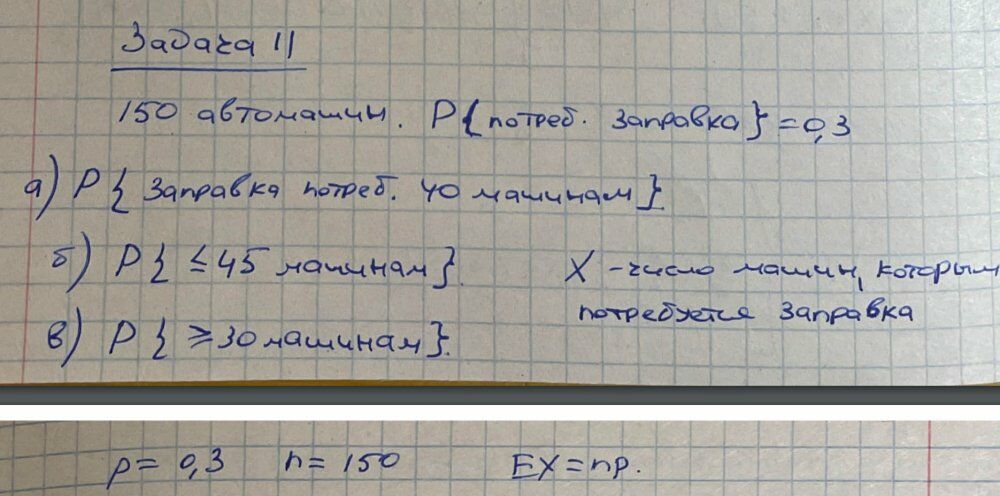 Задача 11
150 автомашин. P{потреб. заправка}=0,3
а) P{ заправка потреб. 40 машинам}.
б) P{ ≤45 машинам}.
X - число машин, которым
потребуется заправка
в) P{ ≥30 машинам}.
p= 0,3 n= 150 EX=np.